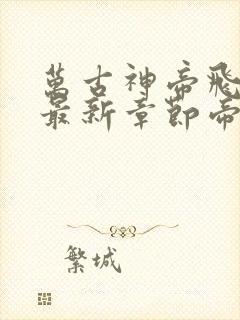 萬古神帝飛
最新章節帝
繁城